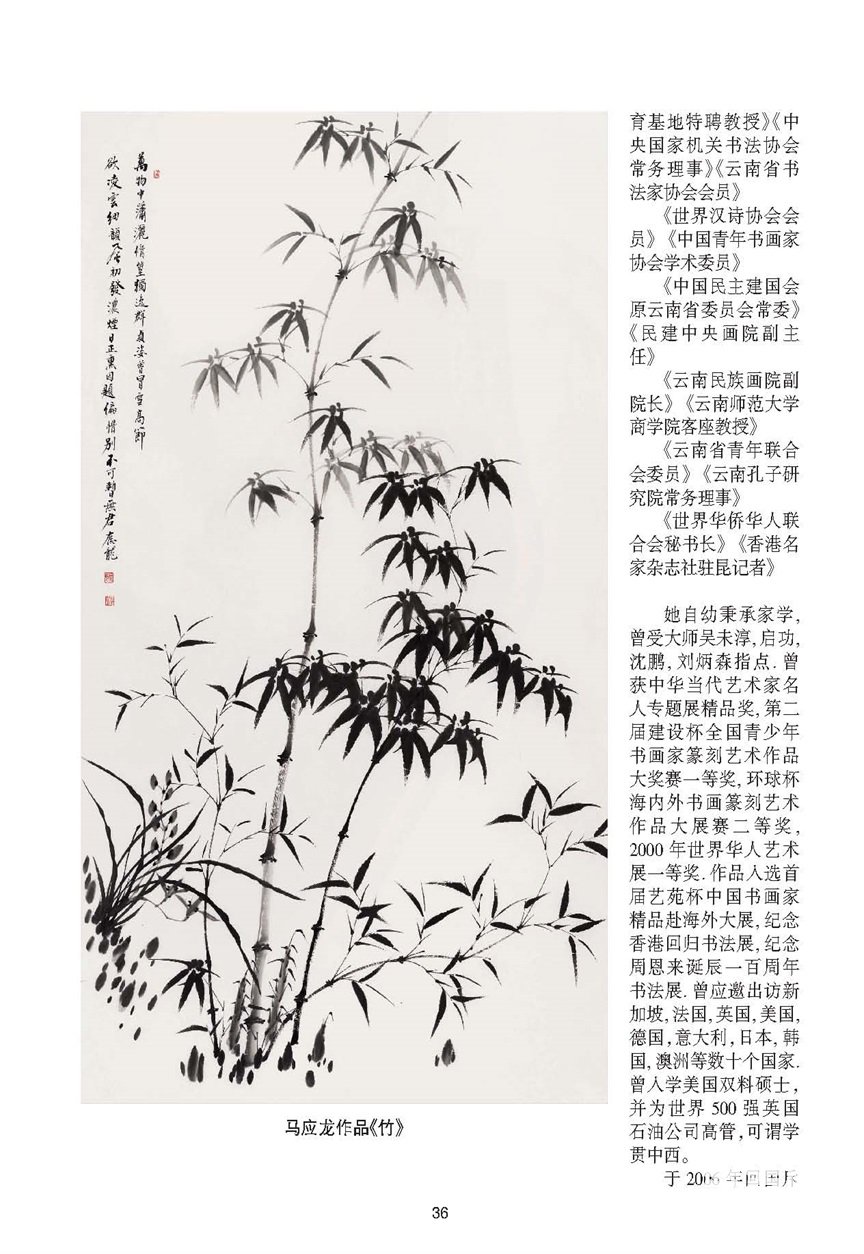 萬物中瀟灑脩篁獨逸群貞姿曾冒雪高節
欲凌雲細韻初發濃煙日正熏因題偏惜別不可暫無君應龍
马应龙作品《竹》
育基地特聘教授》《中
央国家机关书法协会
常务理事》《云南省书
法家协会会员》
《世界汉诗协会会
员》《中国青年书画家
协会学术委员》
《中国民主建国会
原云南省委员会常委》
《民建中央画院副主
任》
《云南民族画院副
院长》《云南师范大学
商学院客座教授》
《云南省青年联合
会委员》《云南孔子研
究院常务理事》
《世界华侨华人联
合会秘书长》《香港名
家杂志社驻昆记者》
她自幼秉承家学,
曾受大师吴未淳,启功,
沈鹏,刘炳森指点.曾
获中华当代艺术家名
人专题展精品奖,第二
届建设杯全国青少年
书画家篆刻艺术作品
大奖赛一等奖,环球杯
海内外书画篆刻艺术
作品大展赛二等奖,
2000年世界华人艺术
展一等奖.作品入选首
届艺苑杯中国书画家
精品赴海外大展,纪念
香港回归书法展,纪念
周恩来诞辰一百周年
书法展.曾应邀出访新
加坡,法国,英国,美国,
德国,意大利,日本,韩
国,澳洲等数十个国家.
曾入学美国双料硕士,
并为世界500强英国
石油公司高管,可谓学
贯中西。
于2006年回国
36